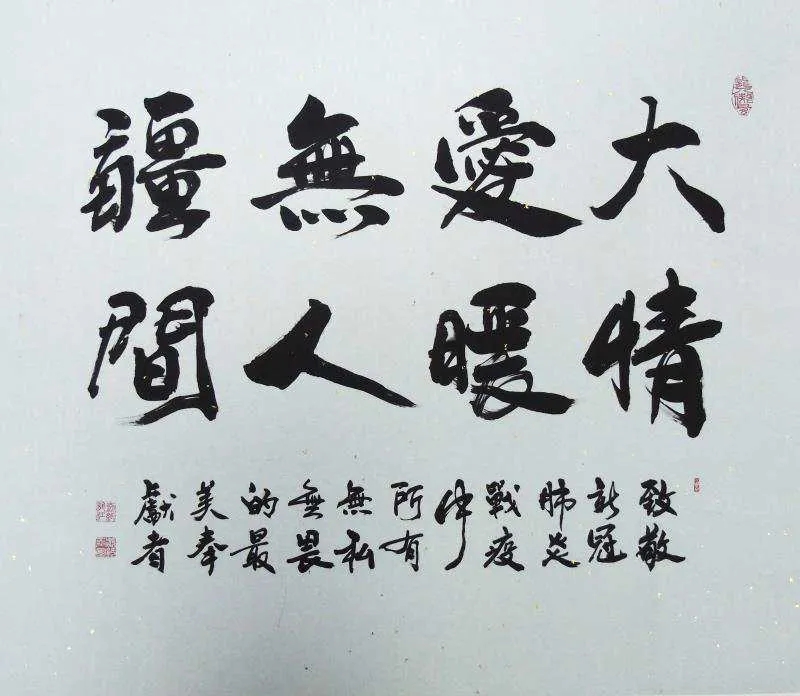 大愛無疆
情暖人間
致敬
新冠
肺炎
戰疫
中
所有
無私
無畏
的最
美奉
獻者